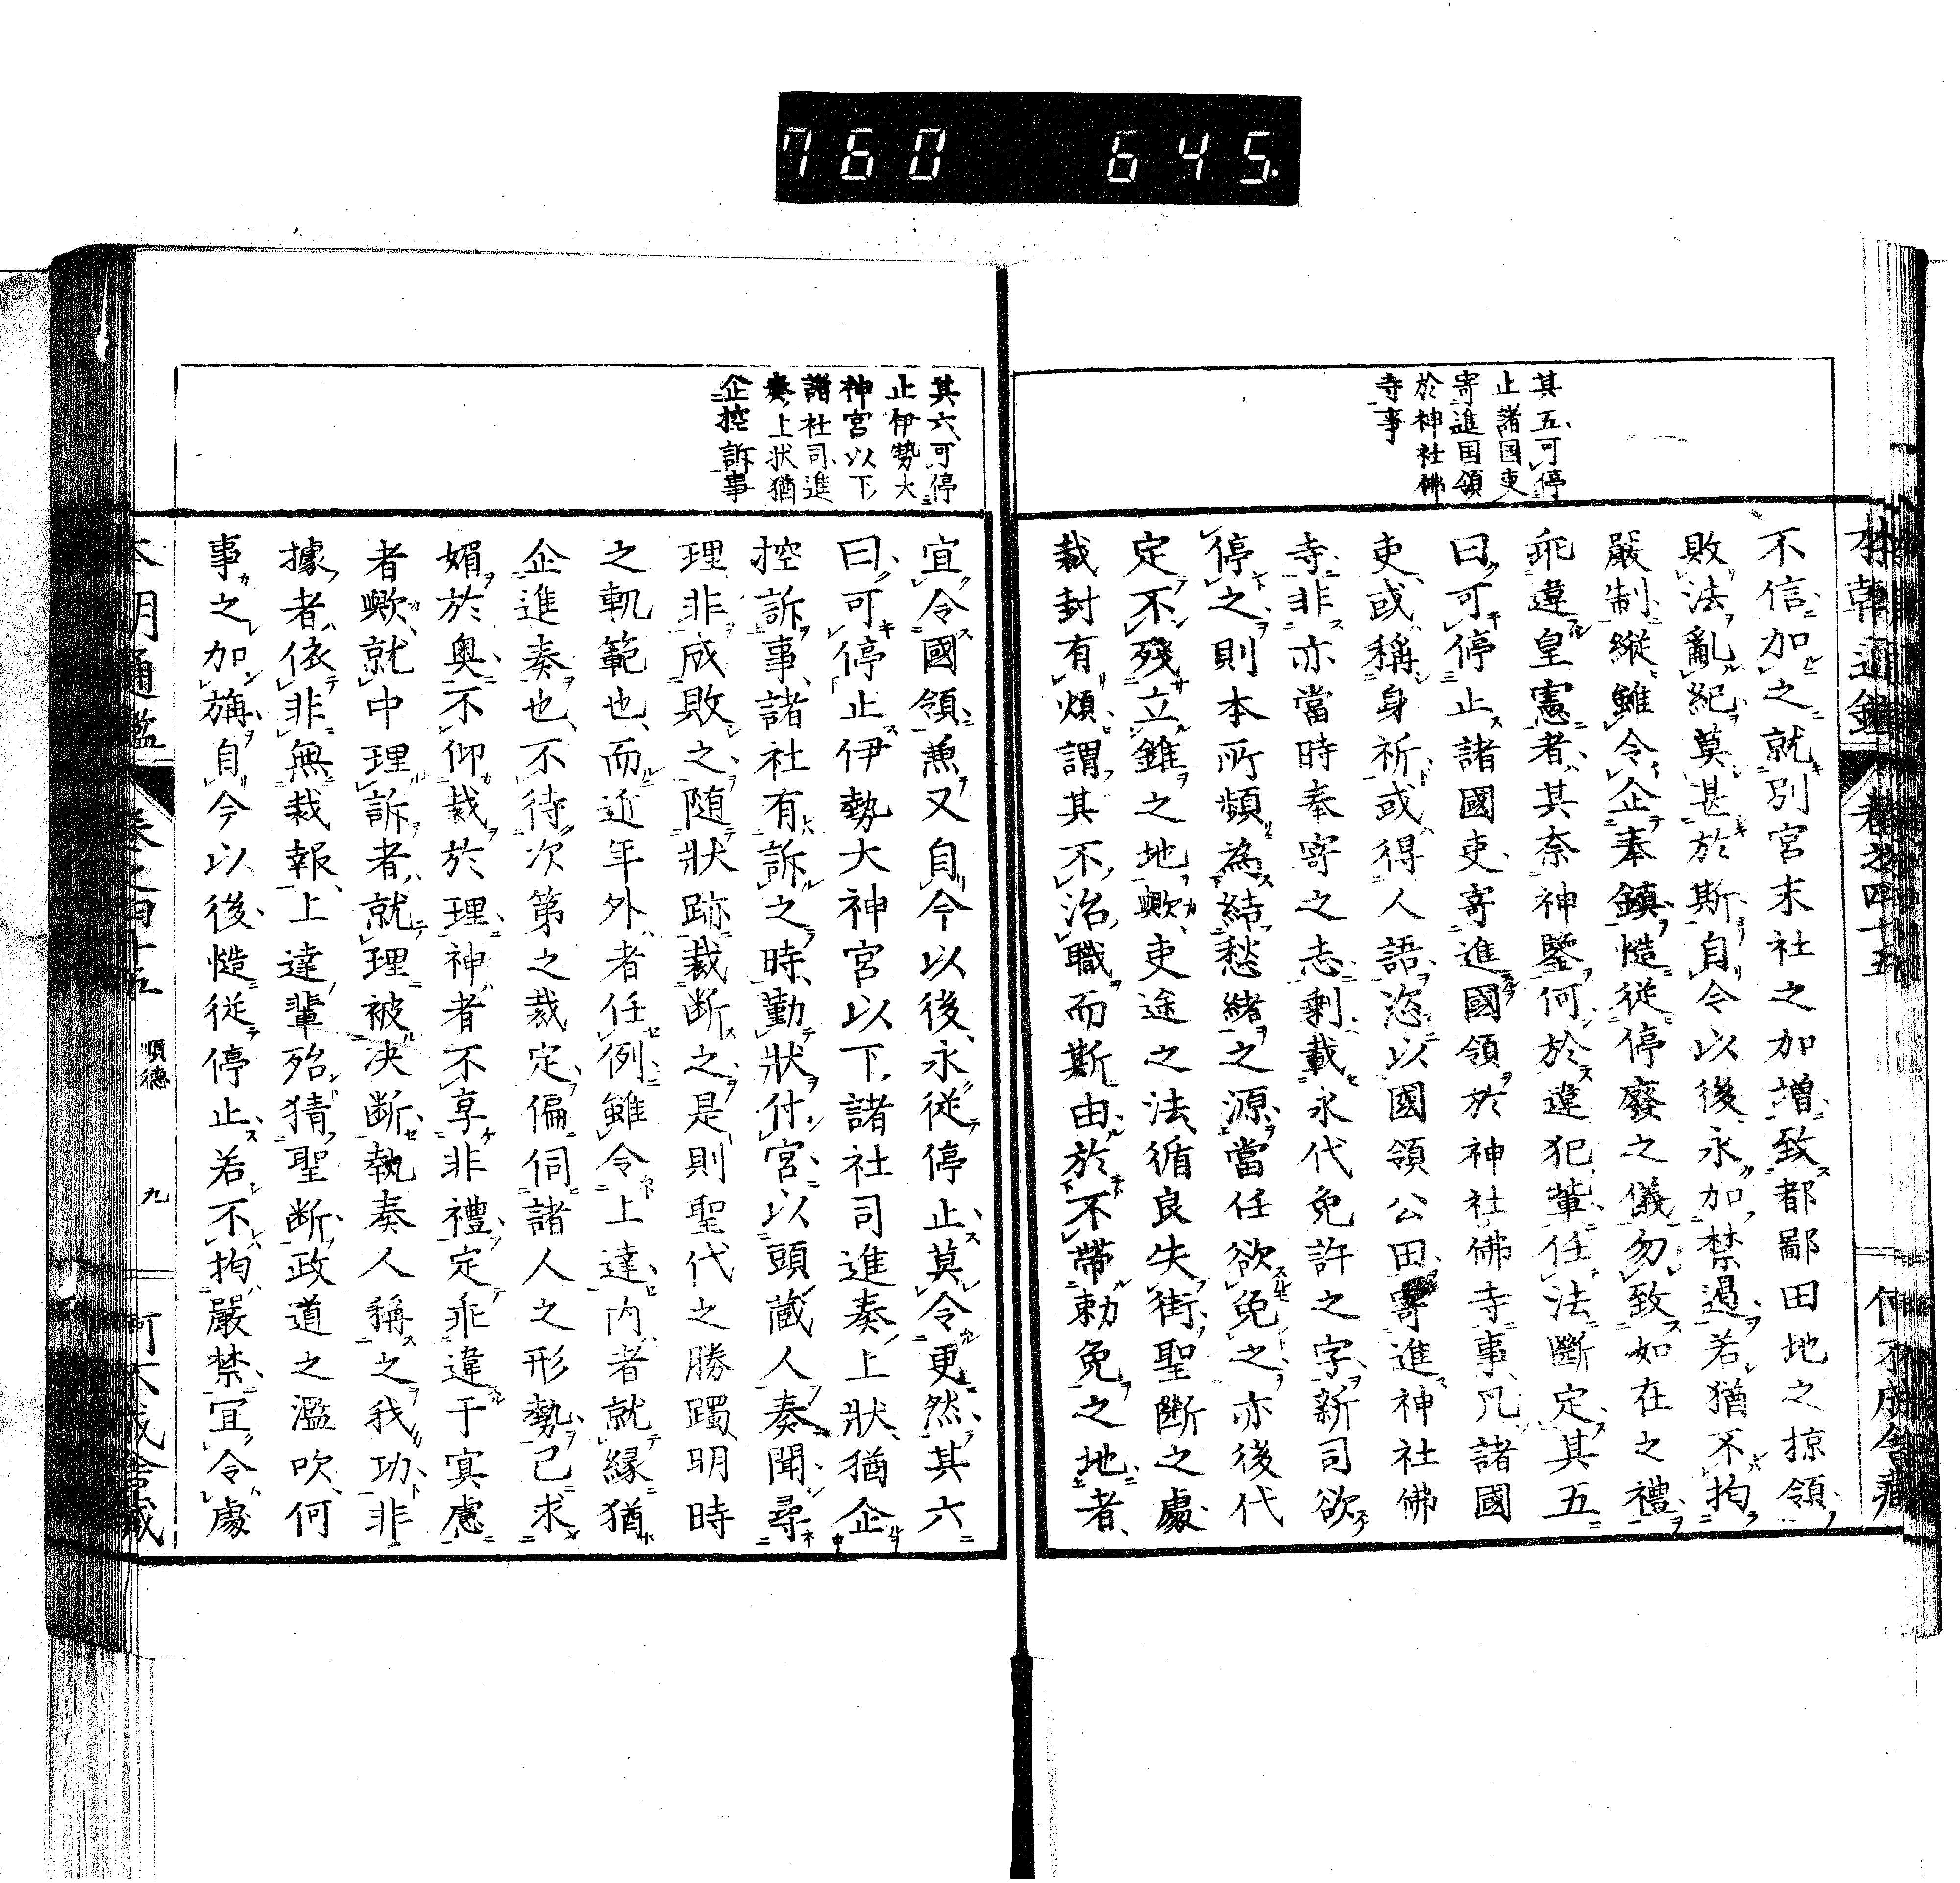 760 645.
本朝通鑑 卷之四十五
其五可停
止諸国吏
寄進国領
於神社佛
寺事
不信加之就別宮末社之加增致都鄙田地之掠領
敗法亂紀莫甚於斯自今以後永加禁遏若猶不拘
嚴制縱雖令企奉鎮慥從停廢之儀勿致如在之禮
乖違皇憲者其奈神鑒何於違犯輩任法斷定其五
曰可停止諸國吏寄進國領於神社佛寺事凡諸國
吏或稱身祈或得人語恣以國領公田寄進神社佛
寺非亦當時奉寄之志剩載永代免許之字新司欲
停之則本所頻為結愁緒之源當任欲免之亦後代
定不殘立錐之地歟吏途之法循良失術聖斷之處
裁封有煩謂其不治職而斯由於不帶勅免之地者
其六可停
止伊勢大
神宮以下
諸社司進
奏上状猶
企控訴事
宜令國領兼又自今以後永從停止莫令更然其六
曰可停止伊勢大神宮以下諸社司進奏上狀猶企
控訴事諸社有訴之時勤狀付宮以頭藏人奏聞尋
理非成敗之随狀跡裁断之是則聖代之勝躅明時
之軌範也而近年外者任例雖令上達内者就縁猶
企進奏也不待次第之裁定偏伺諸人之形勢已求
媚於奥不仰裁於理神者不享非禮定乖違于冥慮
者歟就中理訴者就理被决断執奏人稱之我功非
據者依非無裁報上達輩殆猜聖断政道之濫吹何
事之加旃自今以後慥從停止若不拘嚴禁宜令處
本朝通鑑 卷之四十五 順德 九